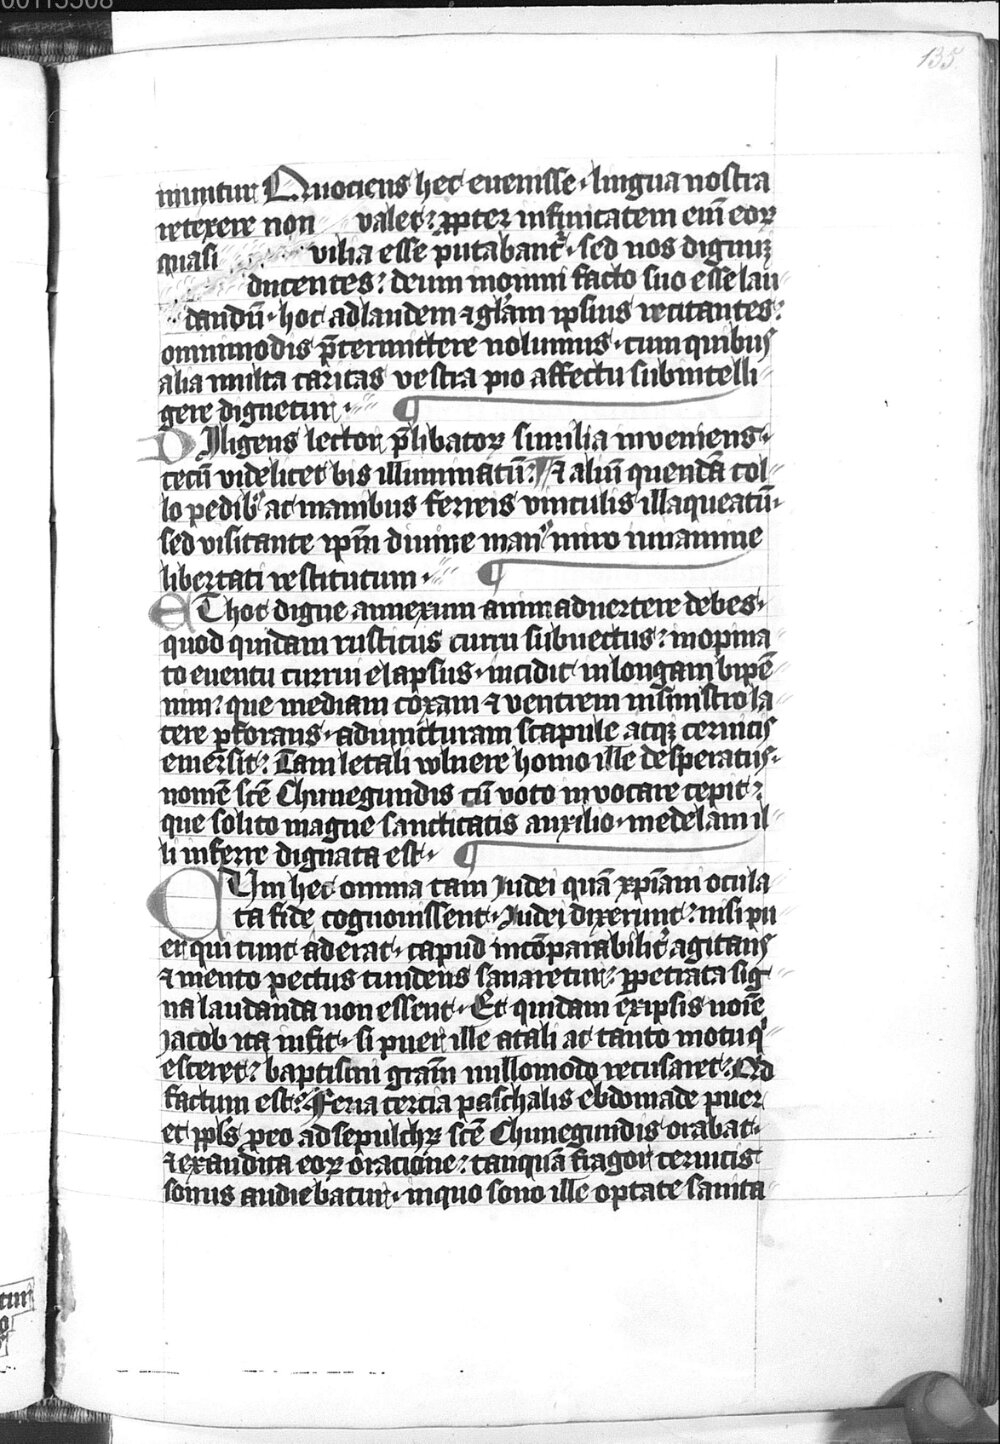 00113308
135
nuntur Quociens hec evenisse · lingua nostra
retexere non valet : ꝓpter infinitatem eni͂ eoꝝ
quasi vilia esse putabant᷑ · sed nos dignuꝫ
ducentes : deum in omni facto suo esse lau
dandū · hoc ad laudem ⁊ gl̄am ipsius recitantes :
omnimodis p̄termittere nolumus · cum quibus
alia multa caritas vestra pio affectu subintelli
gere dignetur ·
Diligens lector p̄libatoꝝ similia inveniens ·
cecū videlicet bis illuminatū : Et aliū quendā col
lo pedibꝰ ac manibus ferreis vinculis illaqueatū ·
sed visitante ip̄m divine manꝰ miro iuvamine
libertati restitutum ·
Et hoc digne annexum animadvertere debes ·
quod quidam rusticus curru subvectus : inopina
to eventu currui elapsus · incidit in longam bipē
nim : que mediam coxam ⁊ ventrem in sinistro la
tere ꝑforans · ad iuncturam scapule atqꝫ cervicis
emersit : Tam letali vulnere homo ille desperatus ·
nomē sc̄e Chunegundis cū voto invocare cepit :
que solito magne sanctitatis auxilio · medelam il
li inferre dignata est ·
Cum hec omnia tam Iudei quā xp̄iani ocula
ta fide cognovissent · Iudei dixerunt : nisi pu
er qui tunc aderat · capud incōparabilit᷑ agitans
⁊ mento pectus tundens sanaretur : ꝑpetrata sig
na laudanda non essent · Et quidam ex ipsis noīe
Jacob ita infit · si puer ille a tali ac tanto motu q̇
esceret : baptismi gr̄am nullomodo recusaret : Qd
factum est : Feria tercia paschalis ebdomade puer
et ppl̄s ꝓ eo ad sepulchꝝ sc̄e Chunegundis orabat ·
⁊ exaudita eoꝝ oracione : tanquā fragor cervicis
sonus audiebatur · in quo sono ille optate sanita